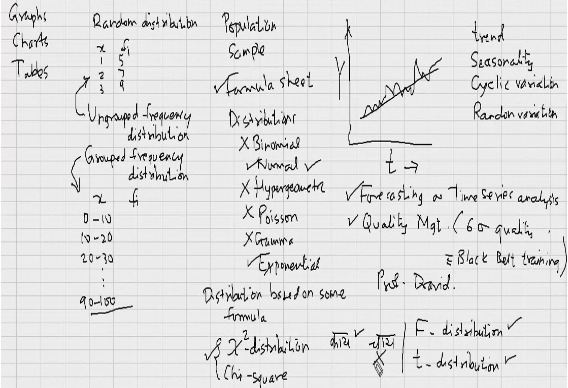 Graphs
Charts
Tables
Random distribution
x fi
1 5
2 7
3 9
Ungrouped frequency
distribution
Grouped frequency
distribution
x fi
0-10
10-20
20-30
⋮
90-100
Population
Sample
✓ Formula sheet
Distributions
X Binomial
✓ Normal ✓
X Hypergeometric
X Poisson
X Gamma
✓ Exponential
Distribution based on some
formula
✓ X²-distribution
Chi-square
√121 ✓
-√121
X
F - distribution ✓
t - distribution ✓
Y
t →
trend
Seasonality
Cyclic variation
Random variation
✓ Forecasting or Time Series analysis
✓ Quality Mgt. (6σ quality.
Black Belt training)
Prof. David.